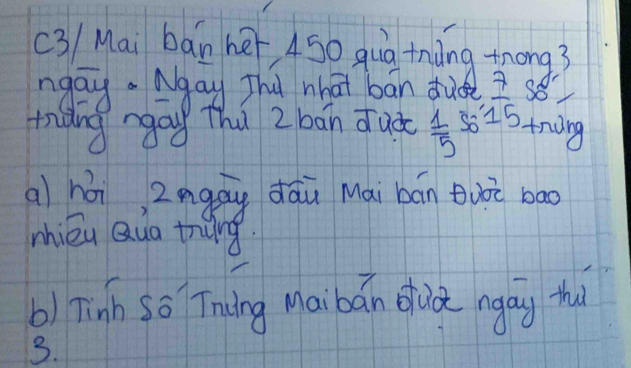 C3/ Mai bán hết 450 quả trứng trong 3
ngày. Ngày Thứ nhất bán được 7/15 số
trứng ngày Thứ 2 bán được 1/5 số trứng
a) hỏi, 2 ngày đầu Mai bán được bao
nhiêu Quả trứng.
b) Tính Số Trứng Mai bán được ngày thứ
3.